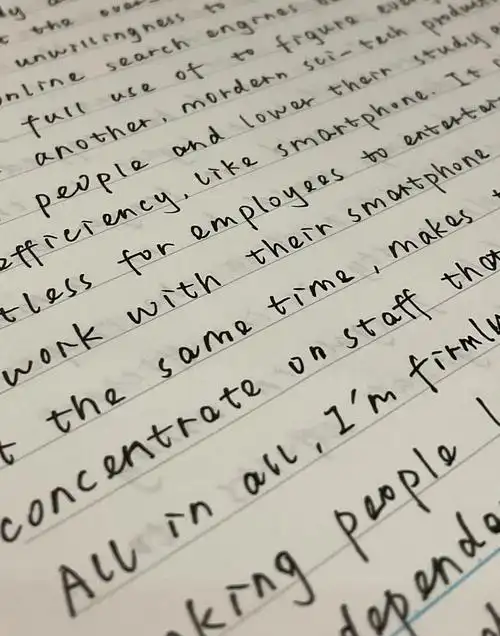 t the over
unwillingness to
online search engines
full use of to figure
another, mordern sci-tech produ
people and lower their study
efficiency, like smartphone. It
tless for employees to enterta
work with their smartphone
t the same time, makes
concentrate on staff tha
All in all, I'm firmly
king people
depend